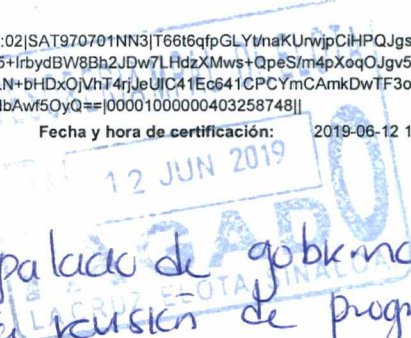 :02|SAT970701NN3|T66t6qfpGLYt/naKUrwjpCiHPQJgs
5+IrbydBW8Bh2JDw7LHdzXMws+QpeS/m4pXoqOJgv5
LN+bHDxOjVhT4rjJeUIC41Ec641CPCYmCAmkDwTF3o
lbAwf5OyQ==|00001000000403258748||
Fecha y hora de certificación: 2019-06-12 1
12 JUN 2019
PAGADO
palacio de gobierno
LA CRUZ ELOTA SINALOA
revisión de progr